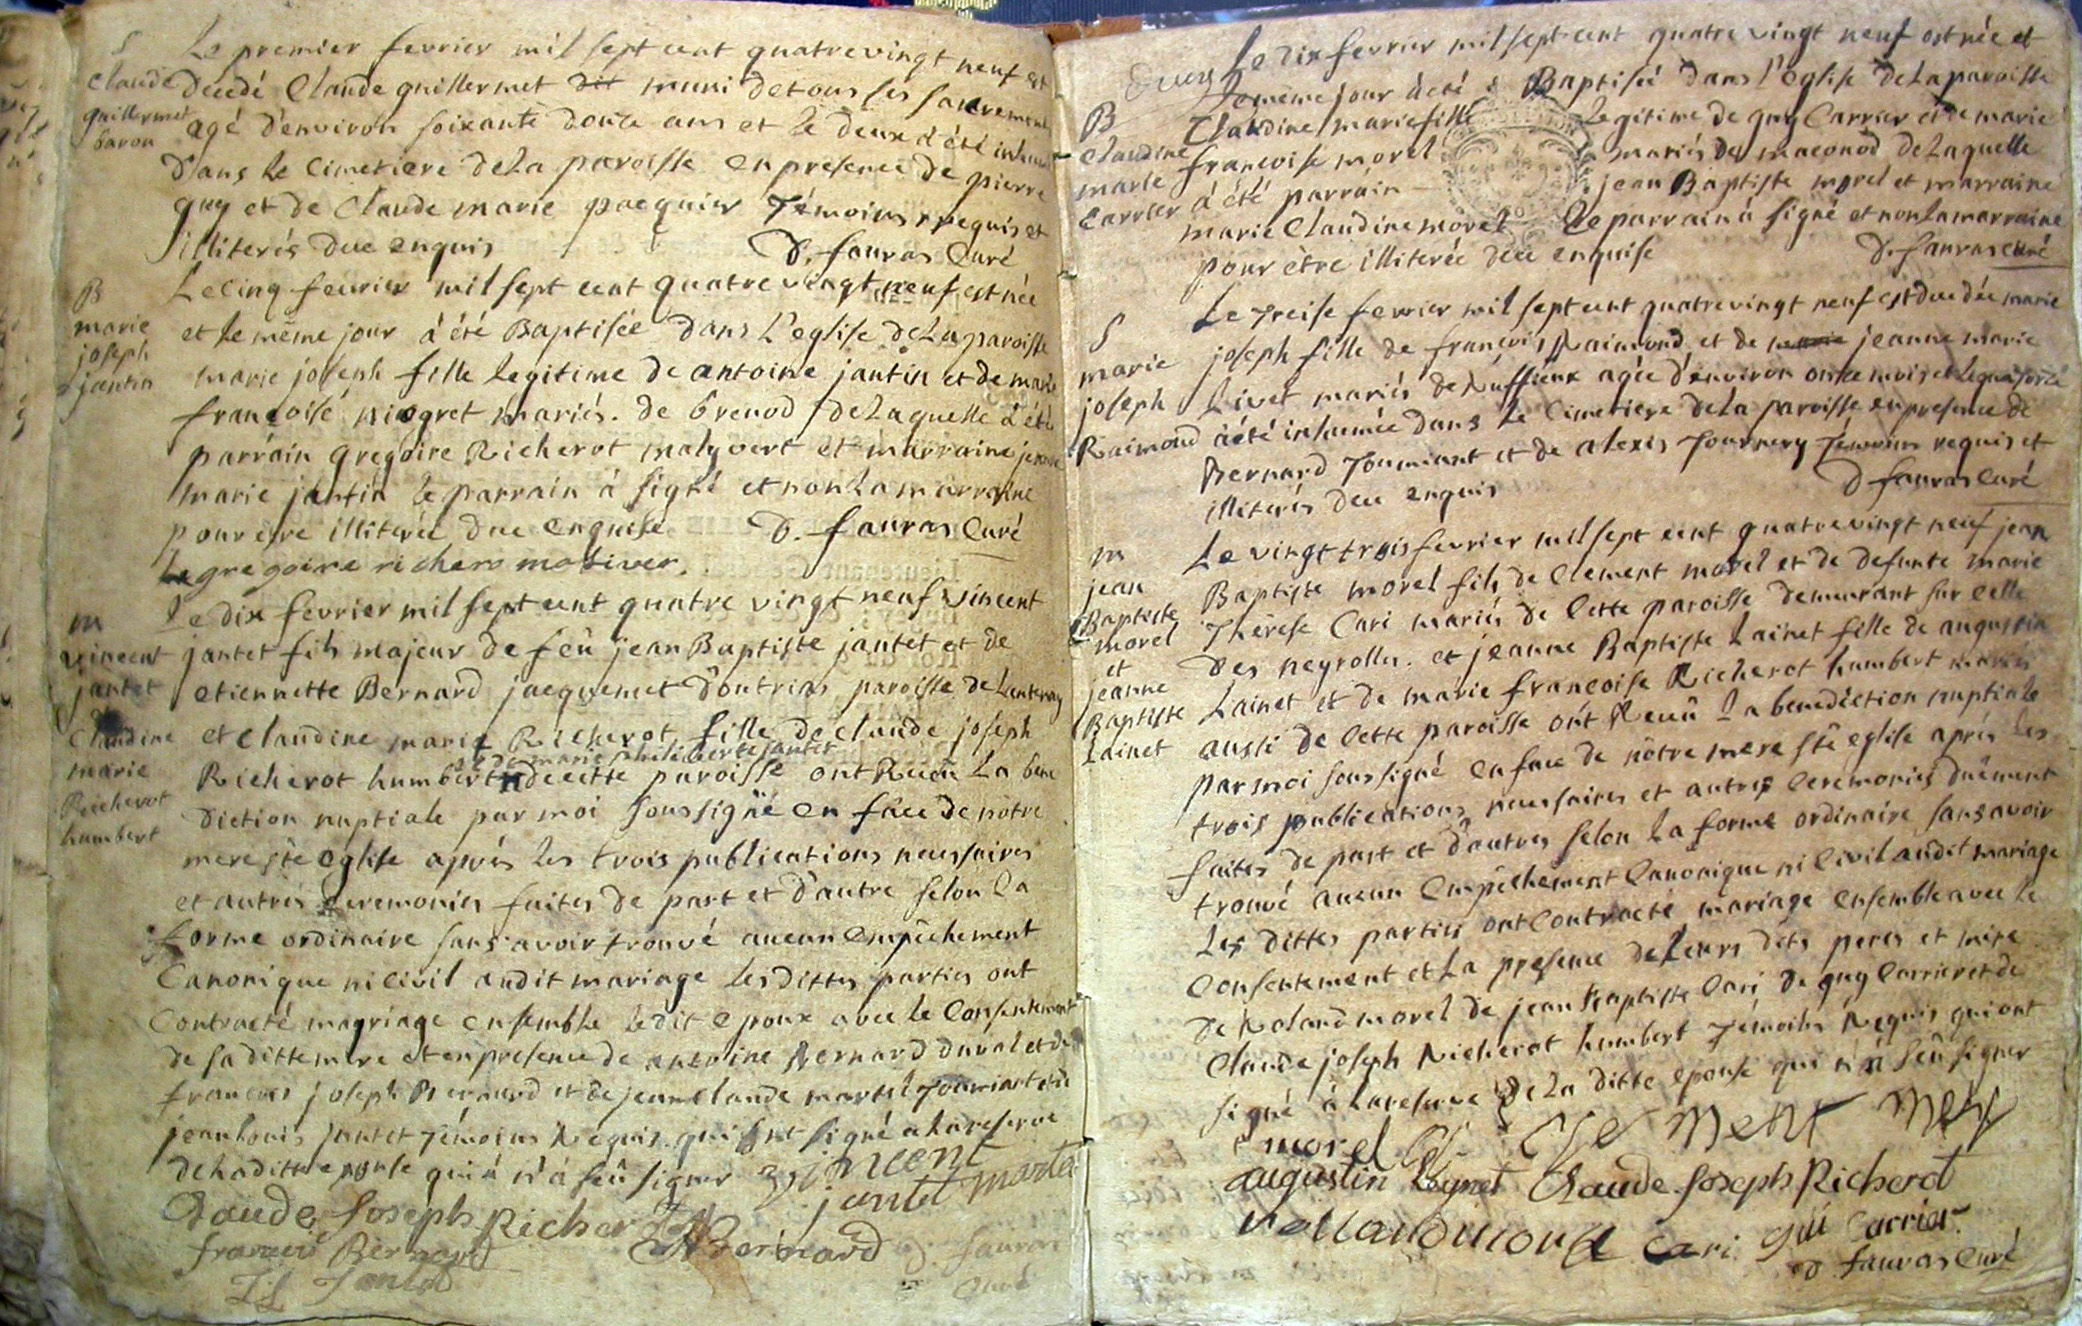 S
Claude
guillermet
baron
Le premier fevrier mil sept cent quatre vingt neuf est
decedé Claude guillermet dit muni de tous les sacrements
agé d'environ soixante douze ans et le deux à été inhumé
dans le cimetiere de la paroisse en presence de pierre
guy et de Claude marie pacquier Témoins requis et
illiterés duc enquis D. fauras Curé
B
marie
joseph
jantin
Le cinq fevrier mil sept cent quatre vingt neuf est née
et le même jour à été Baptisée dans l'eglise de la paroisse
marie joseph fille legitime de antoine jantin et de marie
francoise niogret mariés de brenod de laquelle à été
parrain gregoire Richerot malyvert et marraine jeanne
marie jantin le parrain à signé et non la marraine
pour être illiterée duc enquise D. fauras Curé
gregoire richero
m
vincent
jantet
et
Claudine
marie
Richerot
humbert
Le dix fevrier mil sept cent quatre vingt neuf vincent
jantet fils majeur de feû jean Baptiste jantet et de
etiennette Bernard jacquemet d'outriaz paroisse de Lantenay
et claudine marie Richerot fille de claude joseph
et de marie philiberte jantet
Richerot humbert de cette paroisse ont Recû La bene
diction nuptiale par moi soussigné en face de nôtre
mere ste eglise aprés les trois publications necessaires
et autres Ceremonies faites de part et d'autre selon la
forme ordinaire sans avoir trouvé aucun empêchement
Canonique ni civil audit mariage les dittes parties ont
Contracté magriage ensemble le dit epoux avec le Consentement
de sa ditte mere et en presence de antoine Bernard duval et de
francois joseph Bernard et de jean claude martel Tourniant et de
jean louis jantet Témoins Requis qui ont signé a la reserve
de la ditte epouse qui à n'à sçû signer vincent
jantet martel
Claude Joseph Richerot
A Bernard
francois Bernard D. fauras
JL Jantet Curé
B
Claudine
marie
Carrier
Le dix fevrier mil sept cent quatre vingt neuf est née et
Le meme jour à eté Baptisée dans l'Eglise de la paroisse
Claudine marie fille Legitime de guy Carrier et de marie
francoise morel mariés de maconod de laquelle
à été parrain jean Baptiste morel et marraine
marie Claudine morel Le parrain à signé et non la marraine
pour être illiterée duc enquise D. fauras curé
S
marie
joseph
Raimond
Le treise fevrier mil sept cent quatre vingt neuf est decedée marie
joseph fille de francois Raimond et de marie jeanne marie
Livet mariés de Ruffieux agée d'environ onse mois et le quatorse
à été inhumée dans le Cimetiere de la paroisse en presence de
Bernard Tourniant et de alexis Tournery Témoins requis et
illiterés duc enquis D fauras Curé
m
jean
Baptiste
morel
et
jeanne
Baptiste
Lainet
Le vingt trois fevrier mil sept cent quatre vingt neuf jean
Baptiste morel fils de Clement morel et de defunte marie
Thérese Cari mariés de Cette paroisse demeurant sur celle
des neyrolles et jeanne Baptiste Lainet fille de augustin
Lainet et de marie francoise Richerot humbert mariés
aussi de Cette paroisse ont Recû La benediction nuptiale
par moi soussigné en face de nôtre mere ste eglise aprés les
trois publications necessaires et autres Ceremonies duëment
faites de part et d'autres selon la forme ordinaire sans avoir
trouvé aucun Empêchement Canonique ni Civil audit mariage
Les dittes parties ont Contracté mariage ensemble avec le
Consentement et la presence de leurs dits peres et mere
de Roland morel de jean Baptiste Cari de guy Carrier et de
Claude joseph Richerot humbert Témoins Requis qui ont
signé à la reserve de la ditte epouse qui n'à sçû signer
morel
augustin Leynet Claude Joseph Richerot
Cari gui Carrier
D fauras Curé